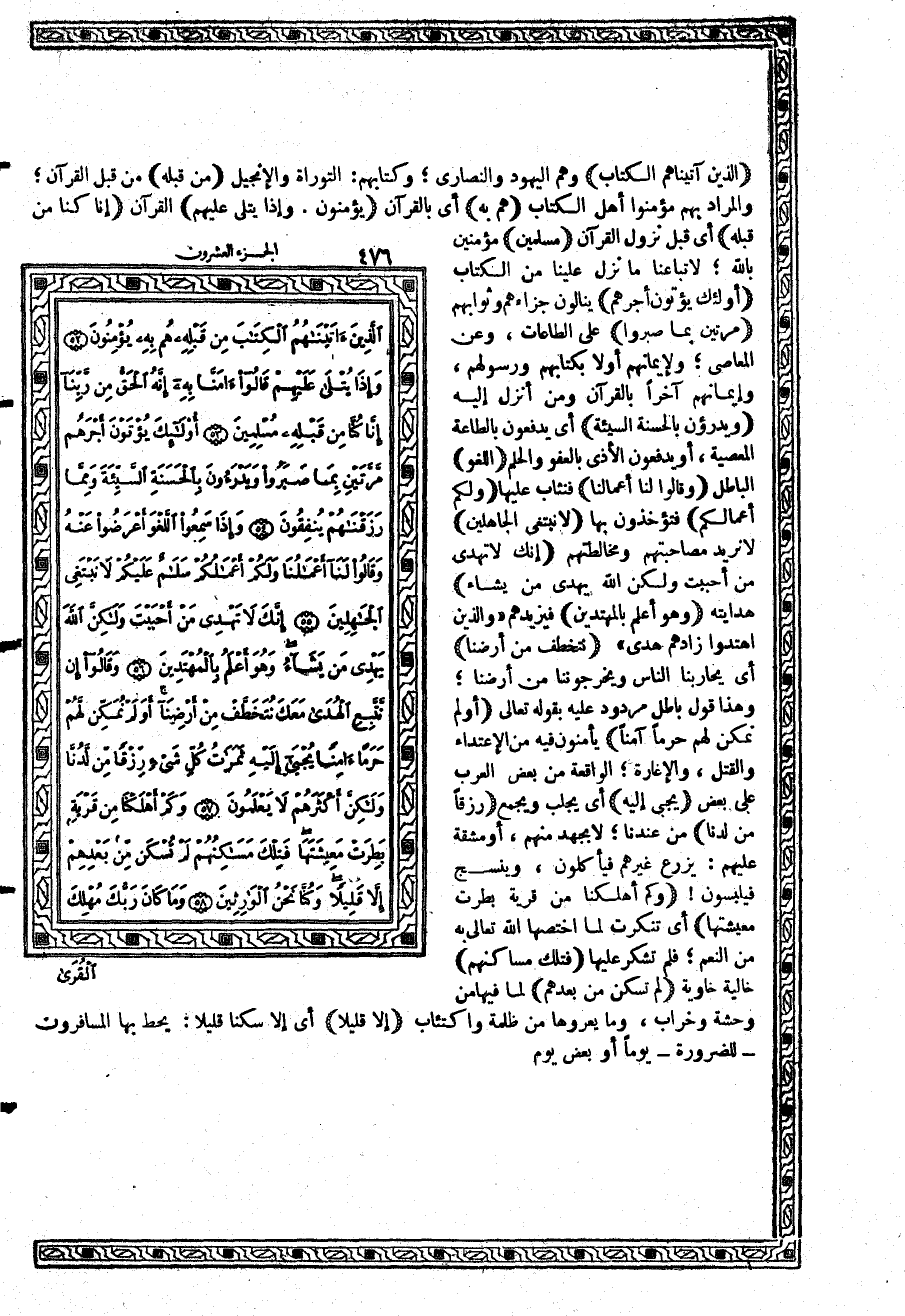 (الذين آتيناهم الكتاب) وهم اليهود والنصارى ؛ وكتابهم: التوراة والإنجيل (من قبله) من قبل القرآن ؛
والمراد بهم مؤمنوا أهل الكتاب (هم به) أى بالقرآن (يؤمنون . وإذا يتلى عليهم) القرآن (إنا كنا من
قبله) أى قبل نزول القرآن (مسلمين) مؤمنين
بالله ؛ لاتباعنا ما نزل علينا من الكتاب
(أولئك يؤتون أجرهم) ينالون جزاءهم وثوابهم
(مرتين بما صبروا) على الطاعات ، وعن
المعاصى ؛ ولإيمانهم أولا بكتابهم ورسولهم ،
وإيمانهم آخراً بالقرآن ومن أنزل إليه
(ويدرؤن بالحسنة السيئة) أى يدفعون بالطاعة
المعصية ، أو يدفعون الأذى بالعفو والحلم (اللغو)
الباطل (وقالوا لنا أعمالنا) فنثاب عليها (ولكم
أعمالكم) فتؤخذون بها (لا نبتغى الجاهلين)
لانريد مصاحبتهم ومخالطتهم (إنك لاتهدى
من أحببت ولكن الله يهدى من يشاء)
هدايته (وهو أعلم بالمهتدين) فيزيدهم «والذين
اهتدوا زادهم هدى» (نتخطف من أرضنا)
أى يحاربنا الناس ويخرجوننا من أرضنا ؛
وهذا قول باطل مردود عليه بقوله تعالى (أولم
نمكن لهم حرماً آمناً) يأمنون فيه من الإعتداء
والقتل ، والإغارة ؛ الواقعة من بعض العرب
على بعض (يجبى إليه) أى يجلب ويجمع (رزقاً
من لدنا) من عندنا ؛ لابجهد منهم ، أومشقة
عليهم : يزرع غيرهم فيأكلون ، وينسج
فيلبسون ! (وكم أهلكنا من قرية بطرت
معيشتها) أى تنكرت لما اختصها الله تعالى به
من النعم ؛ فلم تشكر عليها (فتلك مساكنهم)
خالية خاوية (لم تسكن من بعدهم) لما فيها من
وحشة وخراب ، وما يعروها من ظلمة واكتئاب (إلا قليلا) أى إلا سكنا قليلا : يحط بها المسافرون
ــ للضرورة ــ يوماً أو بعض يوم
٤٧٦ الجزء العشرون
ٱلَّذِينَ ءَاتَيْنَٰهُمُ ٱلْكِتَٰبَ مِن قَبْلِهِۦ هُم بِهِۦ يُؤْمِنُونَ ٥٢
وَإِذَا يُتْلَىٰ عَلَيْهِمْ قَالُوٓا۟ ءَامَنَّا بِهِۦٓ إِنَّهُ ٱلْحَقُّ مِن رَّبِّنَآ
إِنَّا كُنَّا مِن قَبْلِهِۦ مُسْلِمِينَ ٥٣ أُو۟لَٰٓئِكَ يُؤْتَوْنَ أَجْرَهُم
مَّرَّتَيْنِ بِمَا صَبَرُوا۟ وَيَدْرَءُونَ بِٱلْحَسَنَةِ ٱلسَّيِّئَةَ وَمِمَّا
رَزَقْنَٰهُمْ يُنفِقُونَ ٥٤ وَإِذَا سَمِعُوا۟ ٱللَّغْوَ أَعْرَضُوا۟ عَنْهُ
وَقَالُوا۟ لَنَآ أَعْمَٰلُنَا وَلَكُمْ أَعْمَٰلُكُمْ سَلَٰمٌ عَلَيْكُمْ لَا نَبْتَغِى
ٱلْجَٰهِلِينَ ٥٥ إِنَّكَ لَا تَهْدِى مَنْ أَحْبَبْتَ وَلَٰكِنَّ ٱللَّهَ
يَهْدِى مَن يَشَآءُ وَهُوَ أَعْلَمُ بِٱلْمُهْتَدِينَ ٥٦ وَقَالُوٓا۟ إِن
نَّتَّبِعِ ٱلْهُدَىٰ مَعَكَ نُتَخَطَّفْ مِنْ أَرْضِنَآ أَوَلَمْ نُمَكِّن لَّهُمْ
حَرَمًا ءَامِنًا يُجْبَىٰٓ إِلَيْهِ ثَمَرَٰتُ كُلِّ شَىْءٍ رِّزْقًا مِّن لَّدُنَّا
وَلَٰكِنَّ أَكْثَرَهُمْ لَا يَعْلَمُونَ ٥٧ وَكَمْ أَهْلَكْنَا مِن قَرْيَةٍۭ
بَطِرَتْ مَعِيشَتَهَا فَتِلْكَ مَسَٰكِنُهُمْ لَمْ تُسْكَن مِّنۢ بَعْدِهِمْ
إِلَّا قَلِيلًا وَكُنَّا نَحْنُ ٱلْوَٰرِثِينَ ٥٨ وَمَا كَانَ رَبُّكَ مُهْلِكَ
ٱلْقُرَىٰ